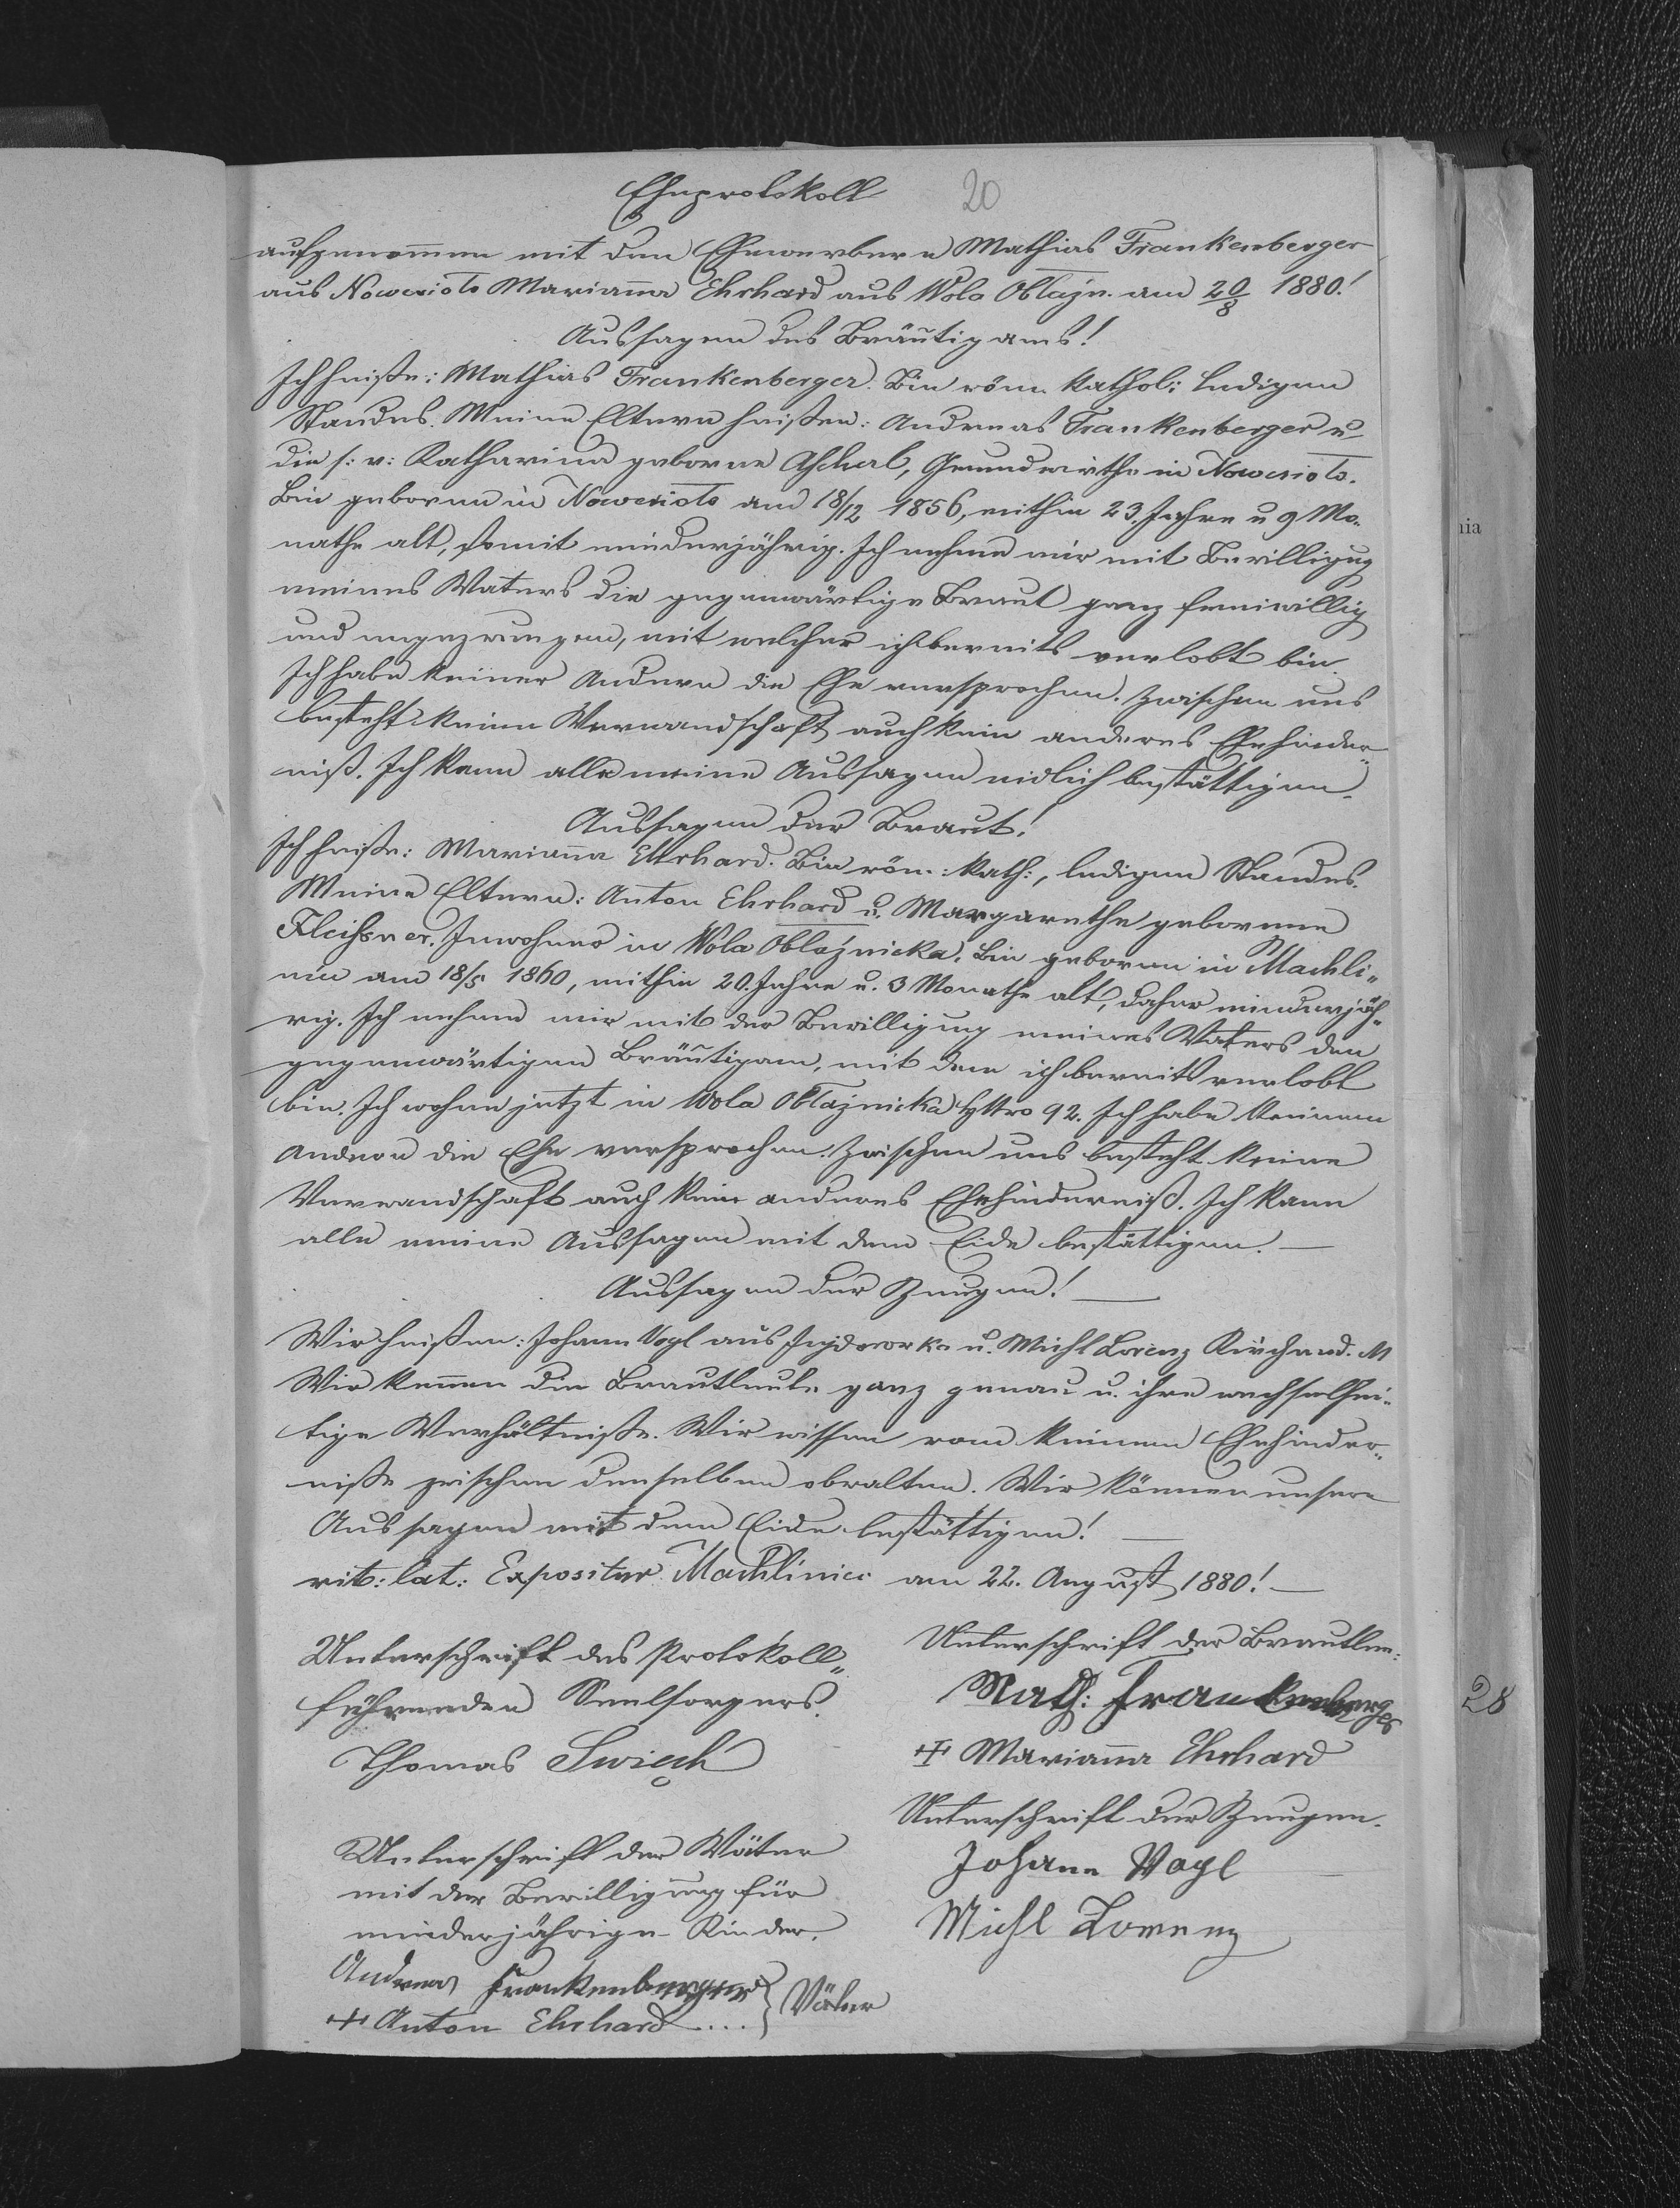 Eheprotokoll 20
aufgenommen mit den Ehewerbern Mathias Frankenberger
aus Nowesioło Marianna Ehrhard aus Wola Obłaźn. am 20/8 1880!
Aussagen des Bräutigams!
Ich heiße: Mathias Frankenberger. Bin röm. kathol: ledigen
Standes. Meine Eltern heißen: Andreas Frankenberger u.
die s: v: Katharina geborne Ascherl, Grundwirthe in Nowesioło.
Bin geboren in Nowesioło am 18/12 1856, mithin 23. Jahre u 9 Mo-
nathe alt, somit minderjährig. Ich nehme mir mit Bewilligug
meines Vaters die gegenwärtige Braut ganz freiwillig
und ungezwungen, mit welcher ich bereits verlobt bin.
Ich habe keiner Andern die Ehe versprochen. Zwischen uns
besteht keine Verwandschaft auch kein anderes Ehehinder„
niß. Ich kann alle meine Aussagen eidlich bestättigen.
Aussagen der Braut!
Ich heiße: Marianna Ehrhard. Bin röm: kath:, ledigen Standes.
Meine Eltern: Anton Ehrhard u. Margarethe geborene
Fleißner. Inwohner in Wola Obłaźnicka. Bin geboren in Machli„
niec am 18/5 1860, mithin 20. Jahre u. 3 Monathe alt, daher minderjäh„
rig. Ich nehme mir mit der Bewilligung meines Vaters den
gegenwärtigen Bräutigam, mit dem ich bereits verlobt
bin. Ich wohne jetzt in Wola Obłaźnicka HNro 92. Ich habe keinem
Andern die Ehe versprochen. Zwischen uns besteht keine
Verwandschaft auch kein anderes Ehehinderniß. Ich kann
alle meine Aussagen mit dem Eide bestättigen. —
Aussagen der Zeugen! —
Wir heißen: Johann Vogl aus u. Michl Lorenz
Wir kennen die Brautleute ganz genau u. ihre wechselsei„
tige Verhältniße. Wir wissen von keinem Ehehinder„
niße zwischen denselben obwalten. Wir können unsere
Aussagen mit dem Eide bestättigen! —
rit: lat: Expositur Machliniec am 22. August 1880! —
Unterschrift des Protokoll„
führenden Seelsorgers.
Thomas Święch
Unterschrift der Brautleu:
Math: Frankenberger
+ Marianna Ehrhard
Unterschrift der Zeugen.
Johann Vogl
Michl Lorenz
Unterschrift der Väter
mit der Bewilligung für
minderjährige Kinder.
Andreas Frankenberger } Väter
+ Anton Ehrhard ....
28
nia